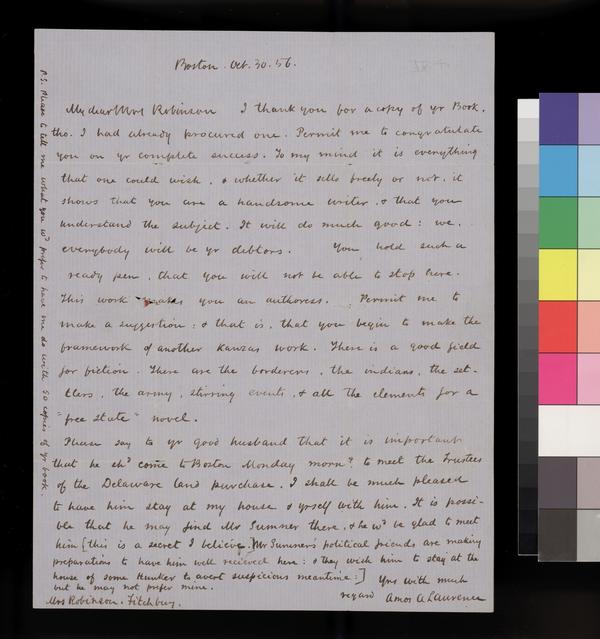 Boston. Oct. 30. 56.
My dear Mrs Robinson I thank you for a copy of yr Book,
tho. I had already procured one. Permit me to congratulate
you on yr complete success. To my mind it is everything
that one could wish, & whether it sells freely or not, it
shows that you are a handsome writer, & that you
understand the subject. It will do much good: we,
everybody will be yr debtors. You hold such a
ready pen, that you will not be able to stop here.
This work makes you an authoress. Permit me to
make a suggestion: & that is, that you begin to make the
framework of another Kanzas work. There is a good field
for fiction. There are the borderers, the indians, the set-
tlers, the army, stirring events, & all the elements for a
"free state" novel.
Please say to yr good husband that it is important
that he shd come to Boston Monday morng to meet the Trustees
of the Delaware land purchase. I shall be much pleased
to have him stay at my house & yrself with him. It is possi-
ble that he may find Mr Sumner there, & he wd be glad to meet
him [this is a secret I believe.] Mr Sumner's political friends are making
preparations to have him well recieved here: & they wish him to stay at the
house of some Hunker to avert suspicious meantime:]
but he may not prefer mine. Yrs with much
regard Amos A Lawrence
Mrs Robinson. Fitchburg.
P.S. Please to tell me what you wd prefer to have me do with 50 copies of yr book.